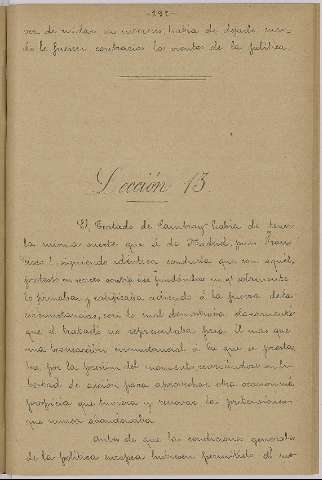 -191-
vez de cuidar sus intereses, había de dejarlo cuan-
do le fuesen contrarios los vientos de la política.
Lección 13
El Tratado de Cambray había de tener
la misma suerte que el de Madrid, pues Fran-
cisco I, siguiendo idéntica conducta que con aquel,
protestó en secreto contra éste fundándose en que solamente
lo firmaba y ratificaba cediendo á la fuerza de las
circunstancias, con lo cual demostraba claramente
que el tratado no representaba para él más que
una transacción circunstancial á la que se presta-
ba por la presión del momento reservándose en li-
bertad de acción para aprovechar otra ocasión más
propicia que tuviera y renovar las pretensiones
que nunca abandonaba.
Antes de que las condiciones generales
de la política europea hubiesen permitido el